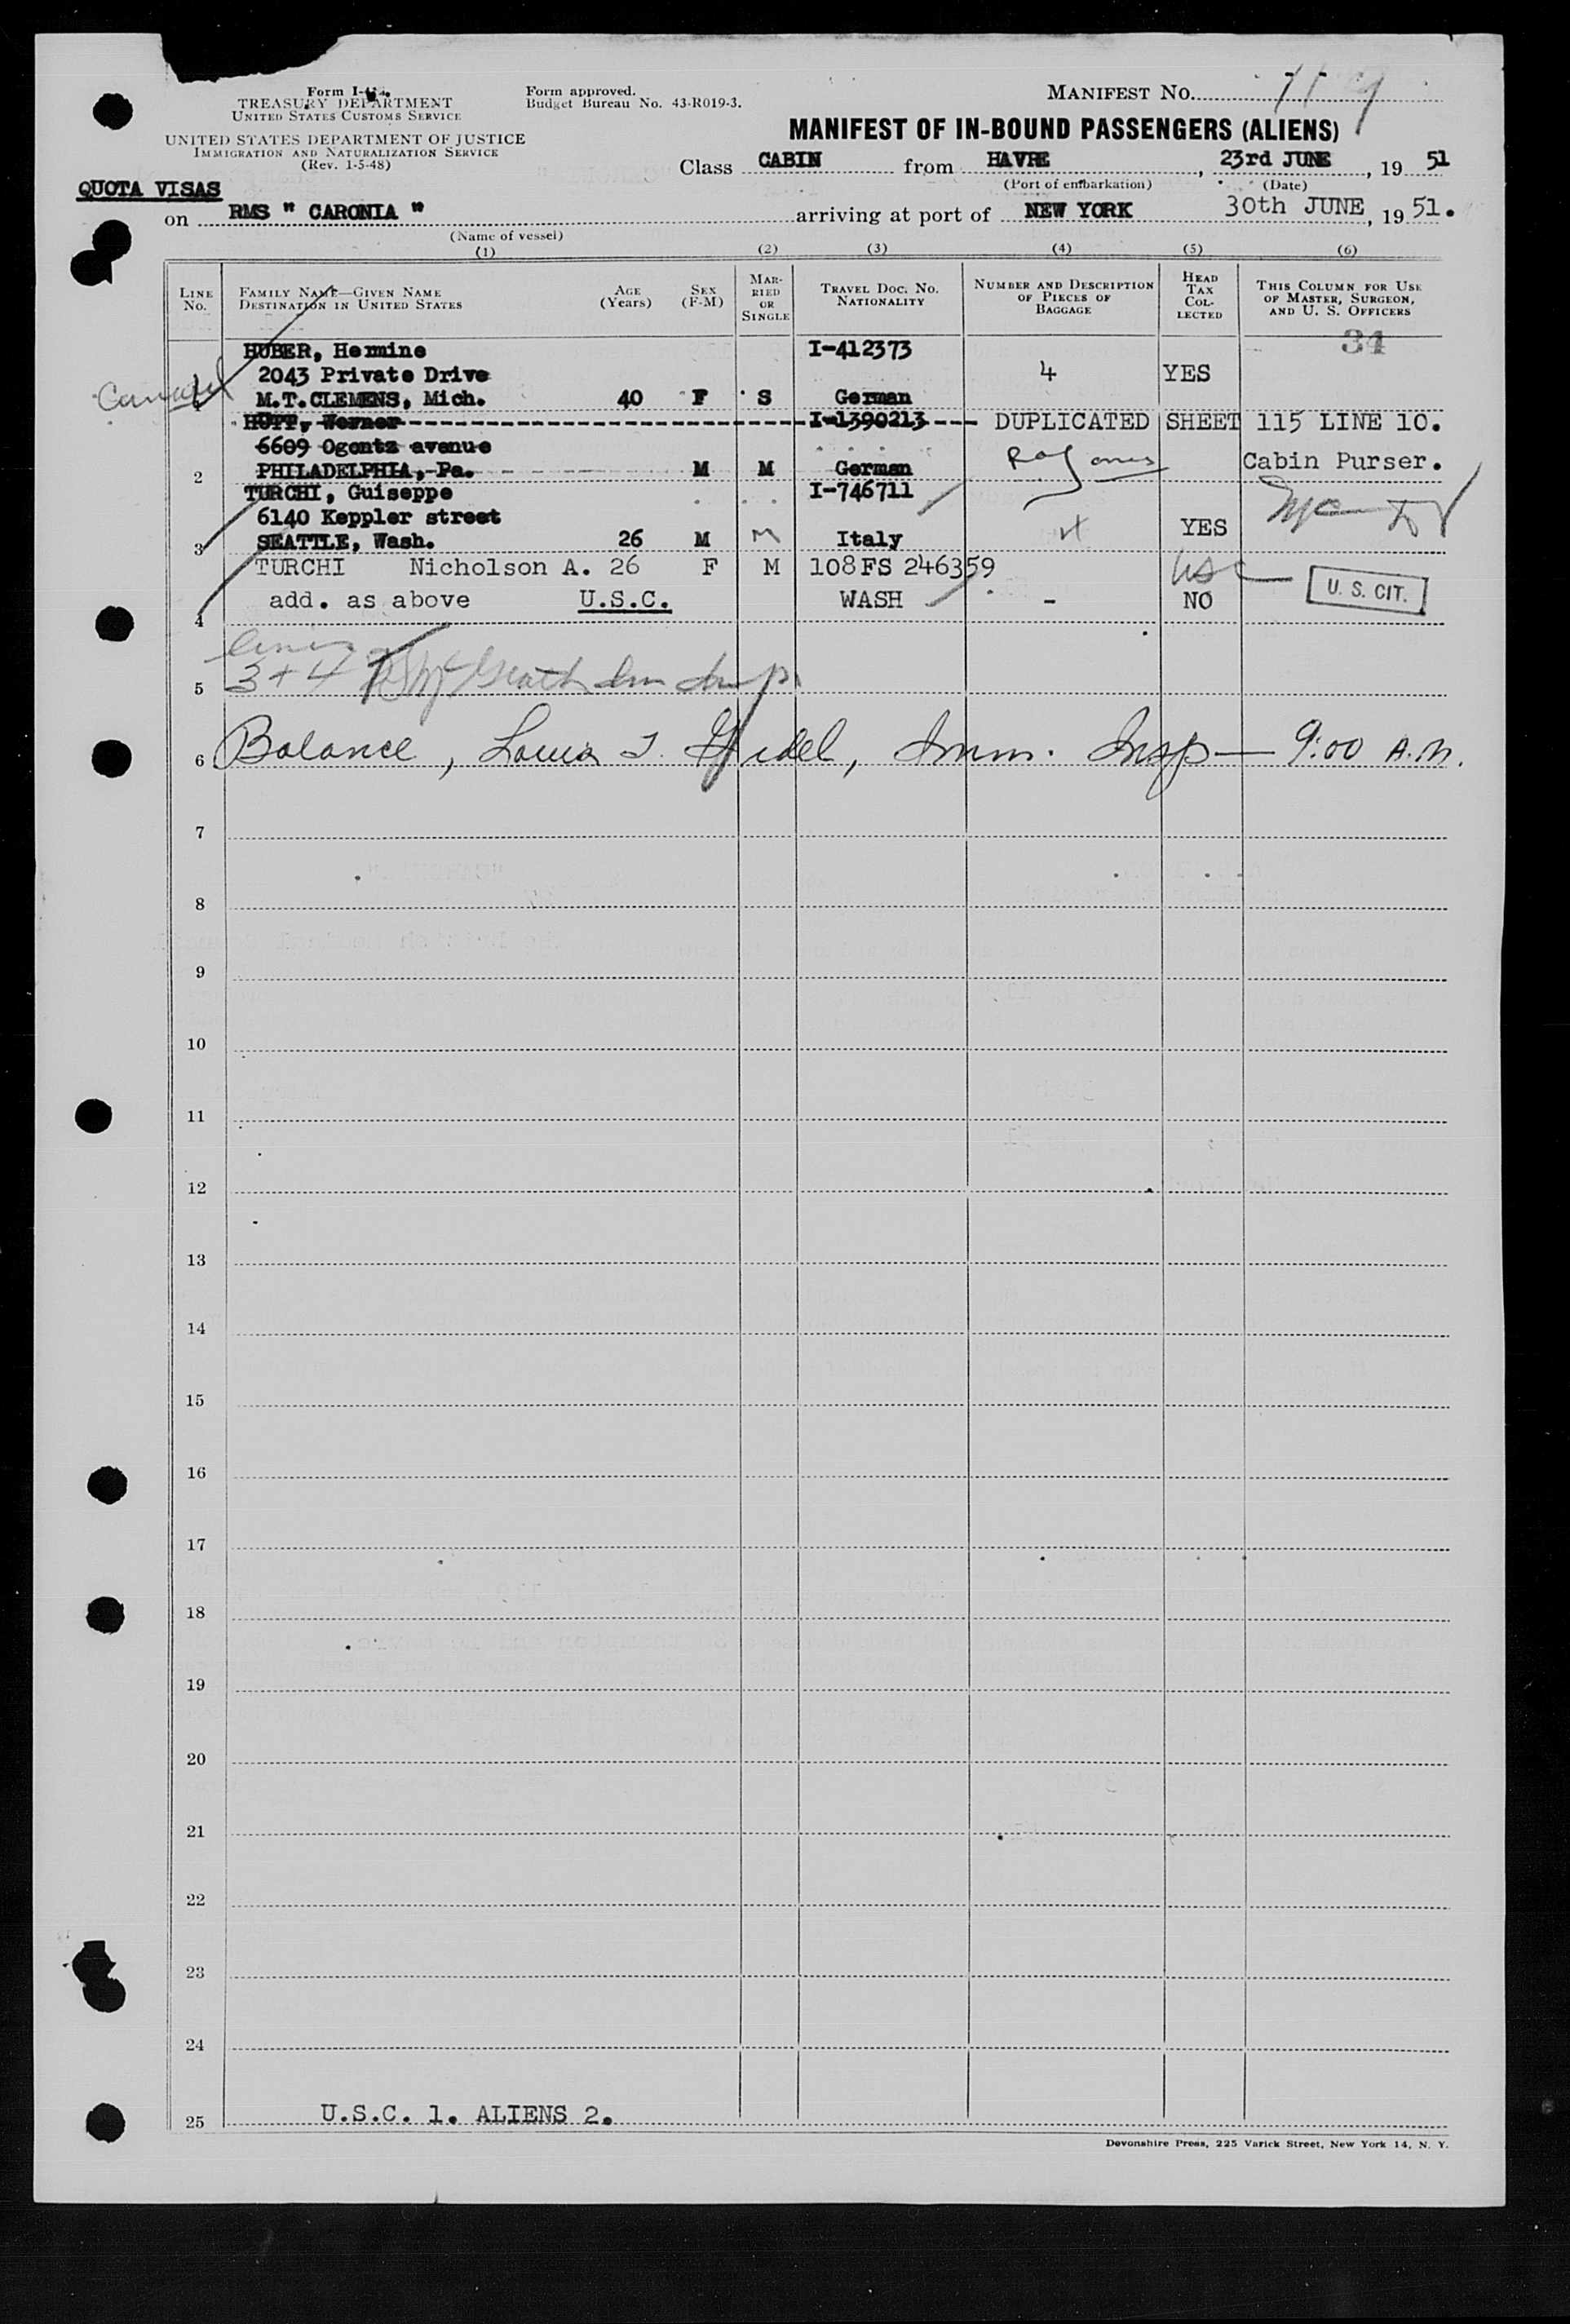 Form I-
TREASURY DEPARTMENT
UNITED STATES CUSTOMS SERVICE
UNITED STATES DEPARTMENT OF JUSTICE
IMMIGRATION AND NATURALIZATION SERVICE
(Rev. 1-5-48)
Form approved.
Budget Bureau No. 43-R019-3.
MANIFEST NO.
MANIFEST OF IN-BOUND PASSENGERS (ALIENS)
Class CABIN from HAVRE, 23rd JUNE, 19 51
(Port of embarkation) (Date)
QUOTA VISAS
on RMS " CARONIA " arriving at port of NEW YORK 30th JUNE, 19 51.
(Name of vessel)
(1) (2) (3) (4) (5) (6)
LINE NO.
FAMILY NAME—GIVEN NAME
DESTINATION IN UNITED STATES
AGE (Years)
SEX (F-M)
MARRIED OR SINGLE
TRAVEL DOC. NO.
NATIONALITY
NUMBER AND DESCRIPTION OF PIECES OF BAGGAGE
HEAD TAX COLLECTED
THIS COLUMN FOR USE OF MASTER, SURGEON, AND U. S. OFFICERS
34
HUBER, Hermine I-412373
2043 Private Drive 4 YES
M.T.CLEMENS, Mich. 40 F S German
HUTT, Werner I-1390213 DUPLICATED SHEET 115 LINE 10.
6609 Ogontz avenue
2 PHILADELPHIA, Pa. M M German Cabin Purser.
TURCHI, Guiseppe I-746711
6140 Keppler street YES
3 SEATTLE, Wash. 26 M M Italy
TURCHI Nicholson A. 26 F M 108FS 246359 USC
add. as above U.S.C. WASH - NO U. S. CIT.
4
5 3 + 4
6 Balance, Louis J. Imm. Insp — 9:00 A.M.
7
8
9
10
11
12
13
14
15
16
17
18
19
20
21
22
23
24
25 U.S.C. 1. ALIENS 2.
Devonshire Press, 225 Varick Street, New York 14, N. Y.